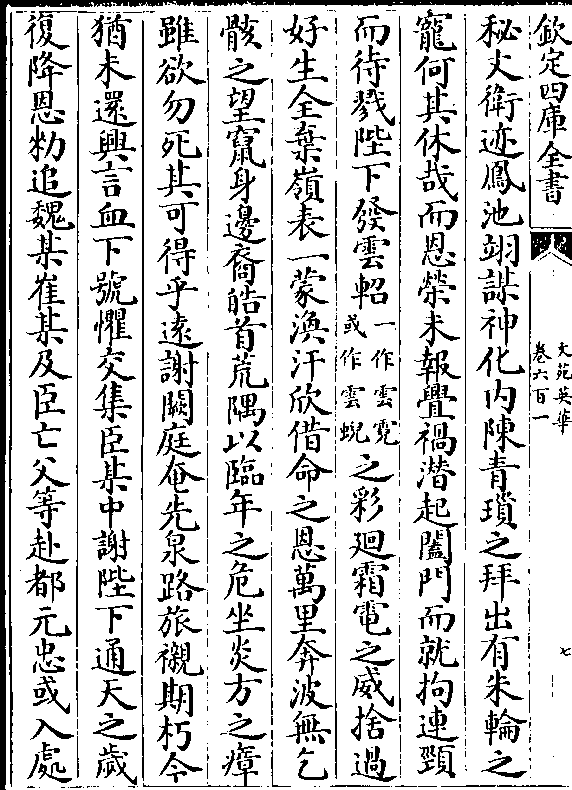 欽定四庫全書
文苑英華
卷六百一
七
秘丈衛迹鳳池翊謀神化内陳青瑣之拜出有朱輪之
寵何其休哉而恩榮未報釁禍潜起闔門而就拘連頸
而待戮陛下發雲軺一作雲霓或作雲蜺之彩廻霜電之威捨過
好生全棄嶺表一蒙渙汗欣借命之恩萬里奔波無乞
骸之望竄身邊裔皓首荒隅以臨年之危坐炎方之瘴
雖欲勿死其可得乎遠謝闕庭奄先泉路旅櫬期朽今
猶未還興言血下號懼交集臣某中謝陛下通天之歲
復降恩勑追魏某崔某及臣亡父等赴都元忠或入處